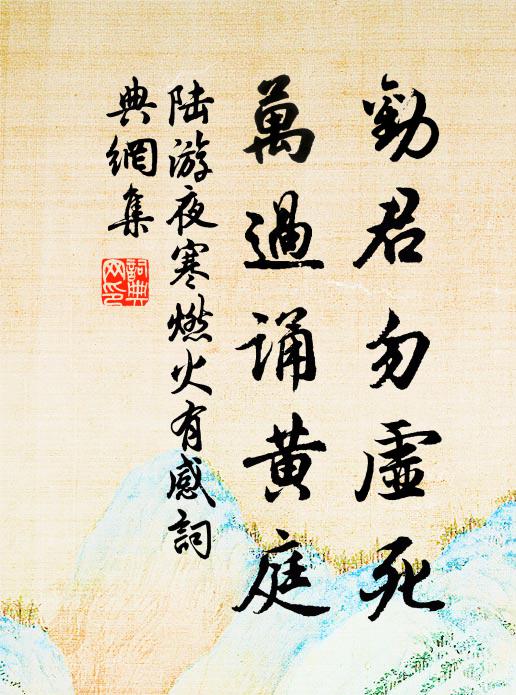 勸君勿虛死
萬過誦黃庭
陆游夜寒燃火有感詞
典網集
詞典
网印